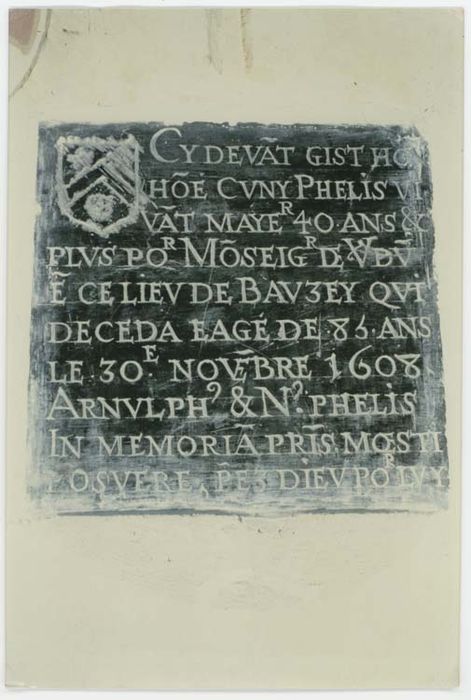 CY DEVAT GIST HO
HŌE CVNY PHELIS VI
VĀT MAYEᴿ 40 ANS &
PLVS POᴿ MŌSEIGᴿ DE
Ē CE LIEV DE BAVZEY QVI
DECEDA EAGÉ DE 85. ANS
LE 30ᴱ. NOVĒBRE 1608.
ARNVLPHꝰ & Nꝰ. PHELIS
IN MEMORIĀ PR̄IS. MOESTI
POSVERE, P̄ES DIEV POᴿ LVY